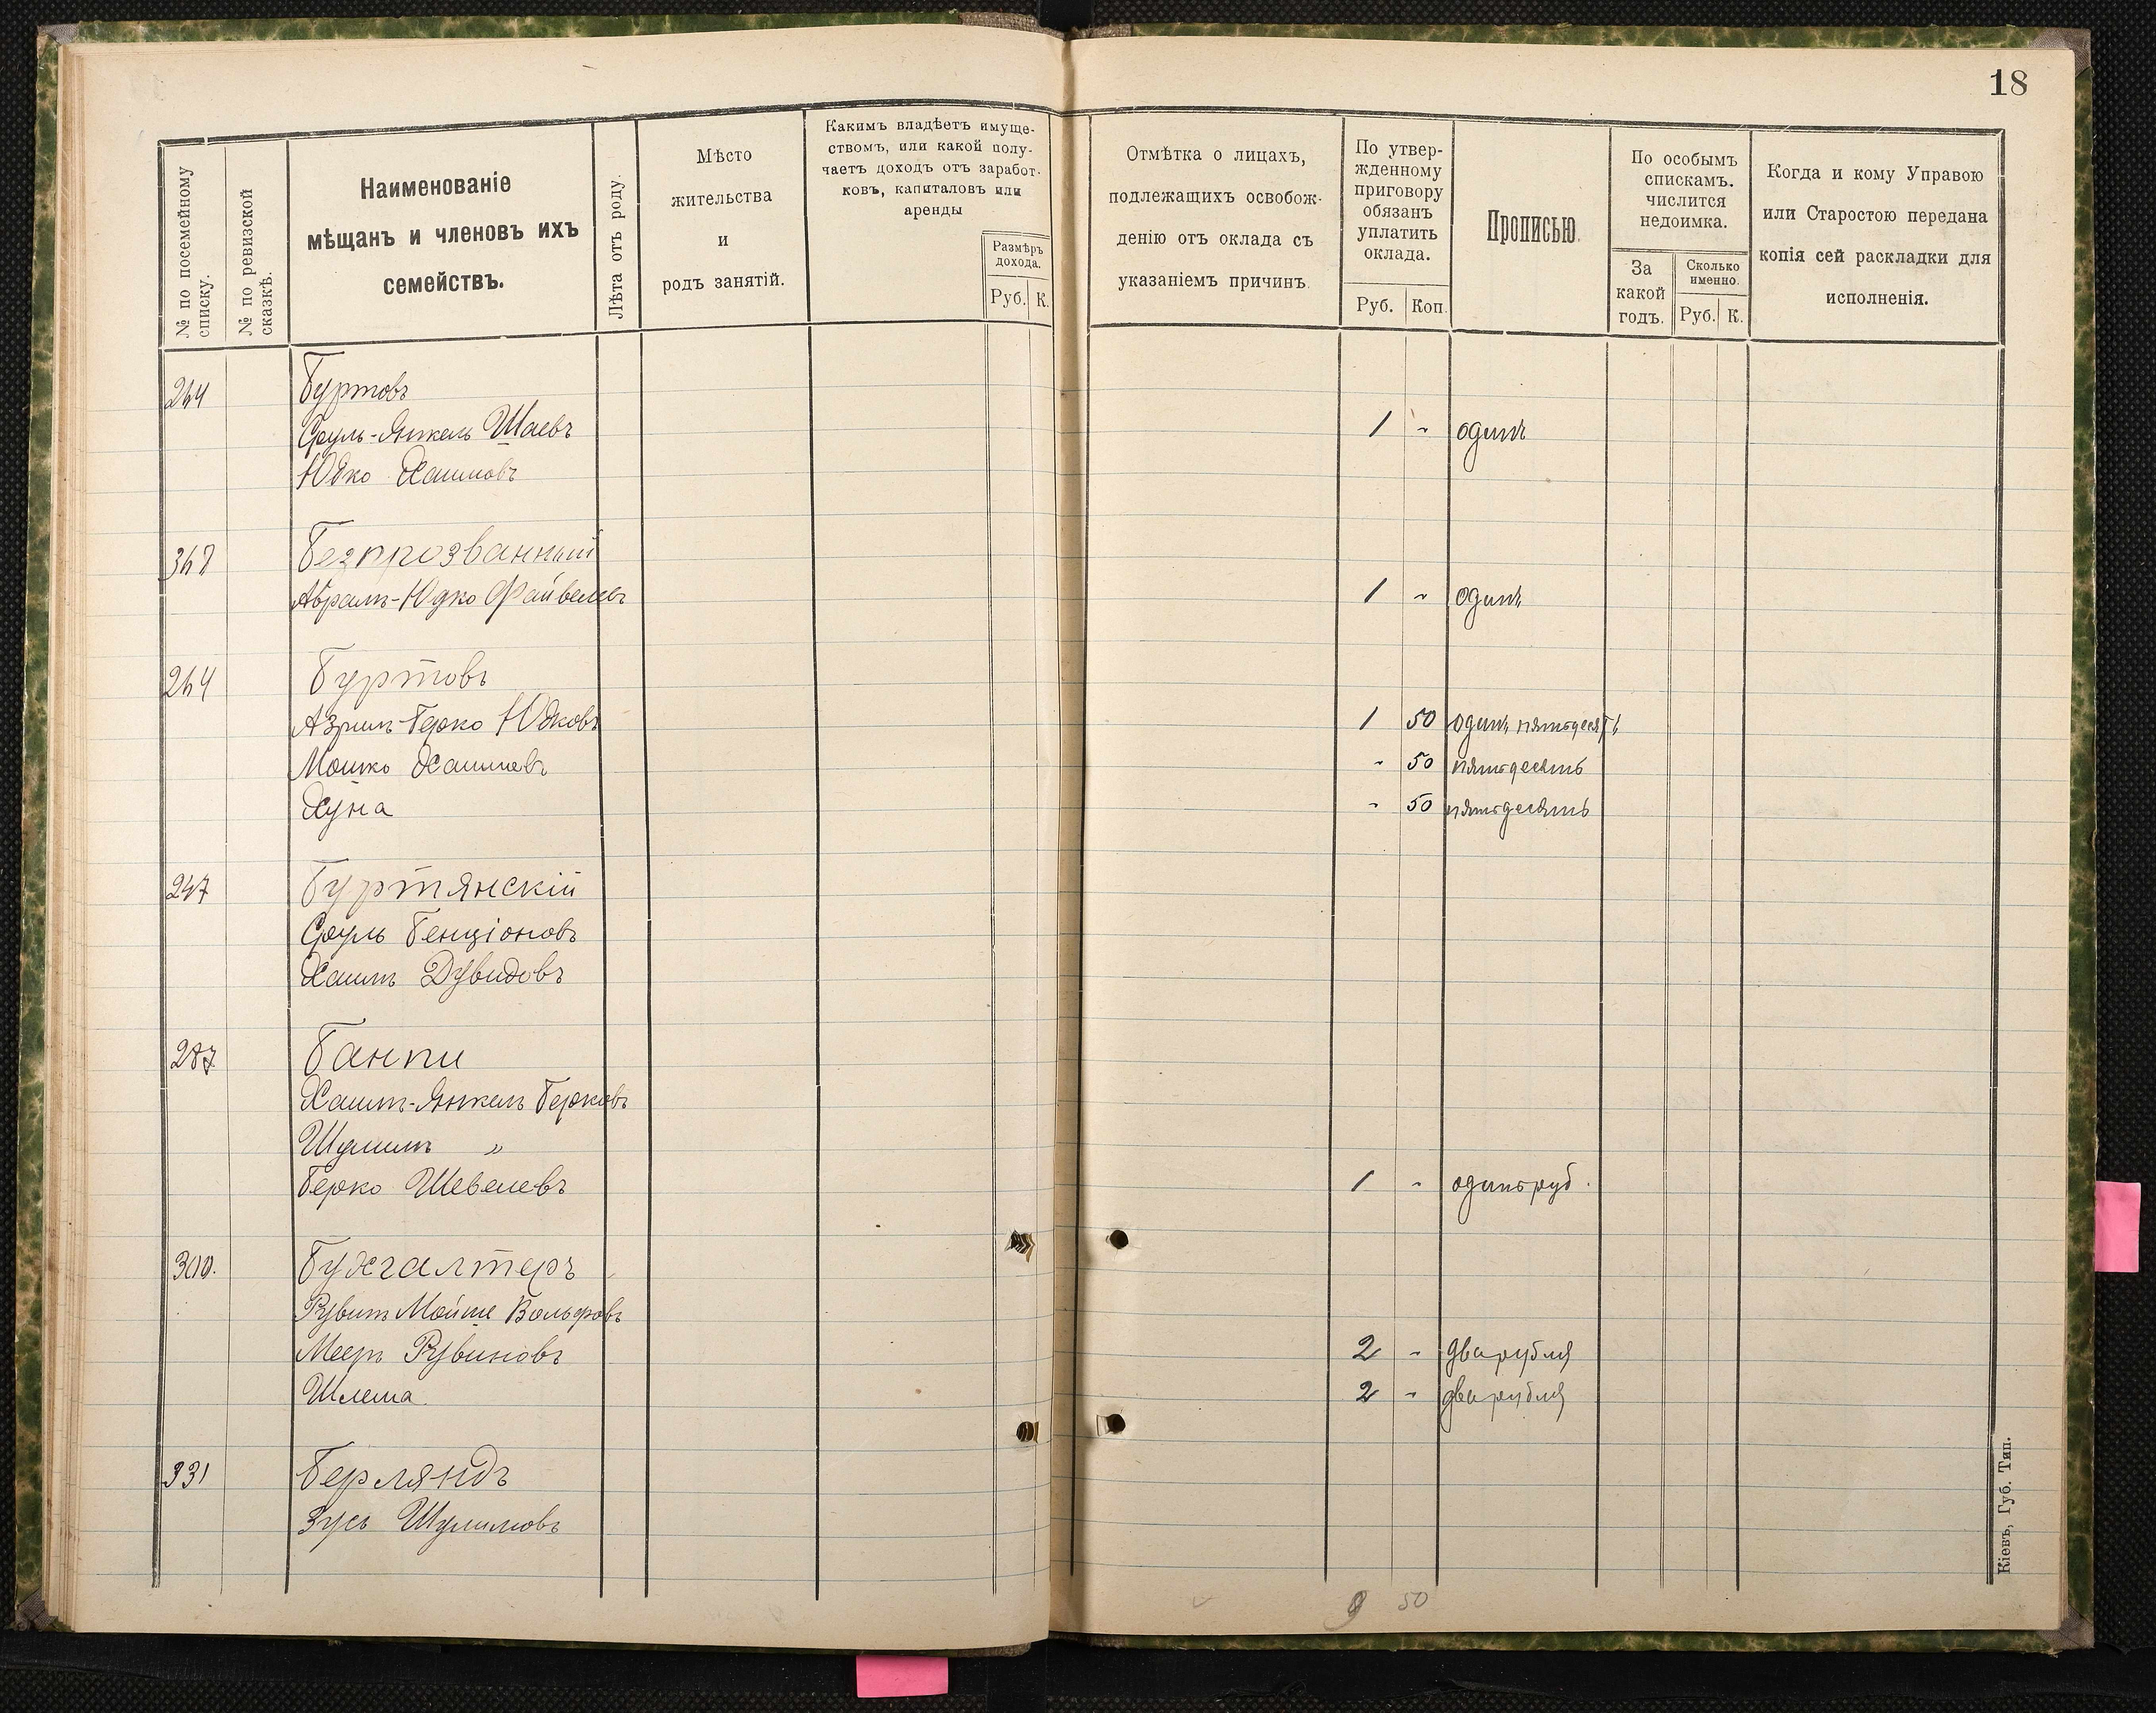 18
№ по посемейному списку.
№ по ревизской сказкѣ.
Наименованіе
мѣщанъ и членовъ ихъ
семействъ.
Лѣта отъ роду.
Мѣсто
жительства
и
родъ занятій.
Какимъ владѣетъ имуще-
ствомъ, или какой полу-
чаетъ доходъ отъ заработ-
ковъ, капиталовъ или
аренды
Размѣръ
дохода.
Руб. К.
Отмѣтка о лицахъ,
подлежащихъ освобож-
денію отъ оклада съ
указаніемъ причинъ.
По утвер-
жденному
приговору
обязанъ
уплатить
оклада.
Руб. Коп.
Прописью.
По особымъ
спискамъ.
числится
недоимка.
За
какой
годъ.
Сколько
именно.
Руб. К.
Когда и кому Управою
или Старостою передана
копія сей раскладки для
исполненія.
264 Буртовъ
Сруль-Янкель Шаевъ 1 " одинъ
Юдко Хаимовъ
Безпрозванный
Абрамъ-Юдко Файвелевъ 1 " одинъ
264 Буртовъ
Азриль-Берко Юдковъ 1 50 одинъ пятьдесятъ
Мошко Хаимовъ " 50 пятьдесятъ
Хуна " 50 пятьдесятъ
247 Буртянскій
Сруль Бенціоновъ
Хаимъ Дувидовъ
287 Банпи
Хаимъ-Янкель Берковъ
Шулимъ "
Берко Шевелевъ 1 " одинъ руб.
300. Бухгалтеръ
Рувинъ Мойше Вольфовъ
Мееръ Рувиновъ 2 " два рубля
Шлема 2 " два рубля
331 Берляндъ
Зусь Шулимовъ
9 50
Кіевъ, Губ. Тип.